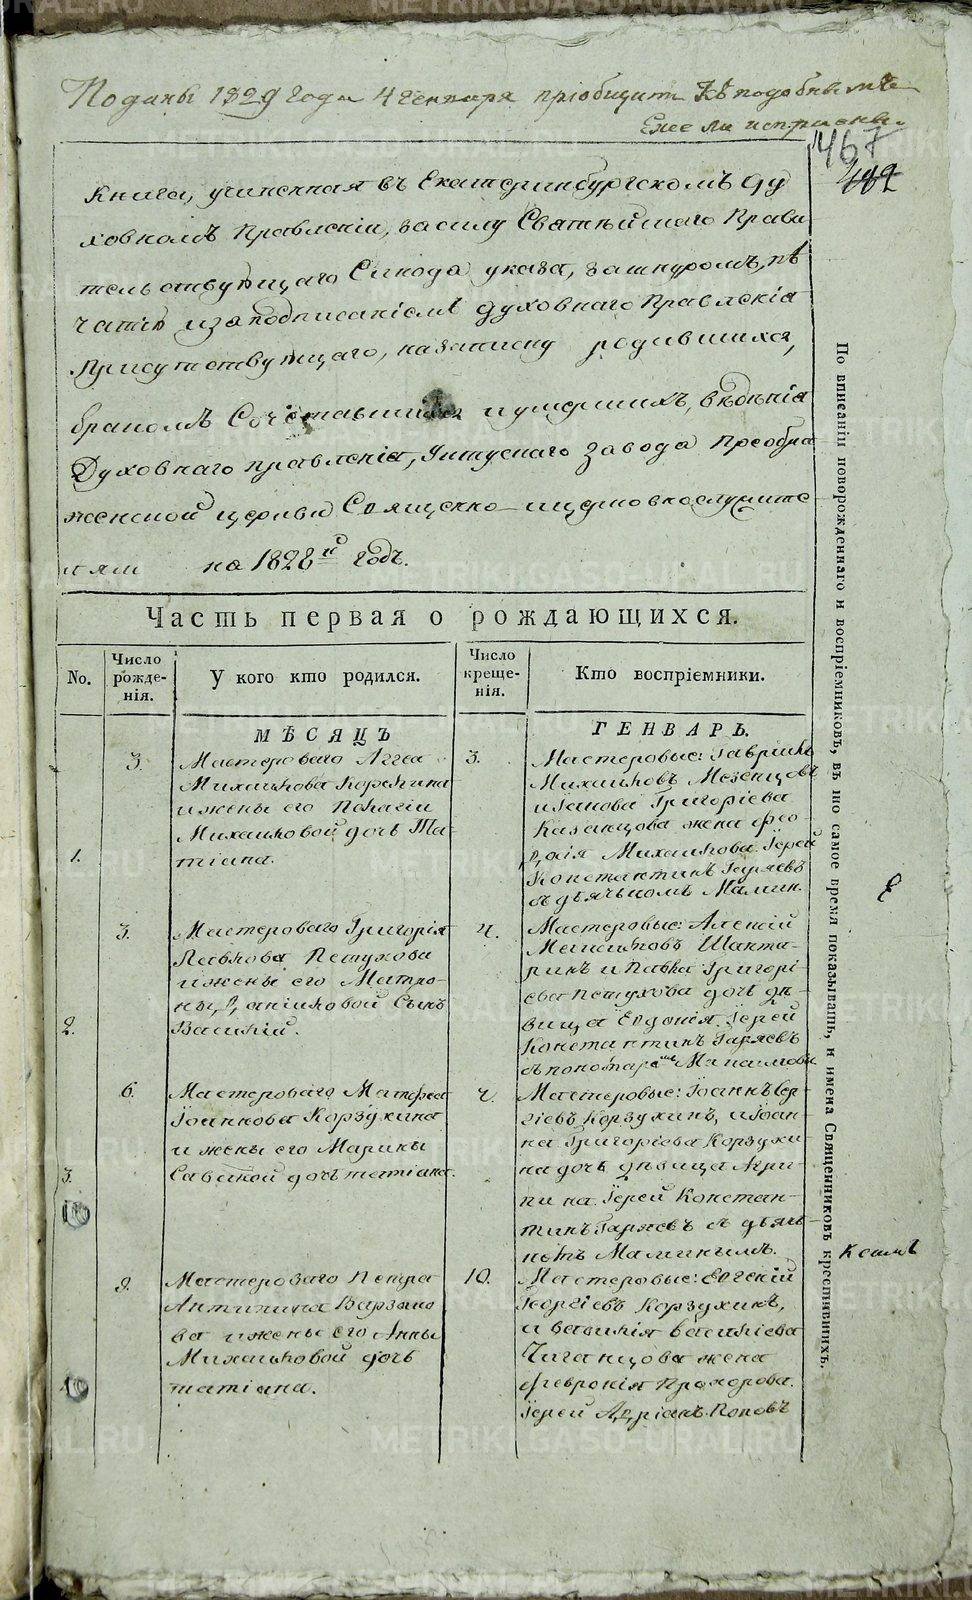 Поданы 1829 года 4 генваря приобщить къ подобнымъ
Ежели исправны.
467
482
Книга, учиненная въ Екатеринбургскомъ Ду
ховномъ Правленіи, засилу Святѣйшаго Прави
тельствующаго Синода указа, зашнуромъ, пѣ
чатью изаподписаніемъ Духовнаго Правленія
Присутствующаго, назаписку родившихся,
бракомъ Сочетавшихся иумершихъ, вѣденія
Духовнаго правленія, Уткускаго завода Преобра
женской церкви Священно ицерковнослужите
лями на 1828й годъ.
Часть первая о рождающихся.
No.
Число рожде-нія.
У кого кто родился.
Число креще-нія.
Кто воспріемники.
МѢСЯЦЪ
ГЕНВАРЬ.
1.
3.
Мастероваго Аггея
Михаилова
ижены его Пелагіи
Михаиловой дочь Та-
тіана.
3.
Мастеровые: Гавріилъ
Михаиловъ Мезенцовъ
иІакова Григоріева
Казанцова жена Фео-
досія Михаилова. Іерей
Константинъ Гаряевъ
съ дьячкомъ Мамин.
2.
3.
Мастероваго Григорія
Павлова Петухова
ижены его Матро-
ны Даніиловой Сынъ
Василій.
4.
Мастеровые: Алексій
ринъ иПавла Григорі-
ева Петухова дочь дѣ-
вица Евдокія. Іерей
Константинъ Гаряевъ
3.
6.
Мастероваго Матфея
Іоаннова Корзухина
ижены его Марины
Савиной дочь татіана.
Мастеровые: Іоаннъ Сер-
гіевъ Корзухинъ, иІоан-
на Григоріева Корзухи
на дочь дѣвица Агри-
пина. Іерей Констан-
тинъ Гаряевъ съ дьяч-
комъ Маминымъ.
10
9.
Мастероваго Петра
Антипина
ва ижены его Анны
Михаиловой дочь
татіана.
10.
Мастеровые: Евгеній
Георгіевъ Корзухинъ,
иВасилія Василіева
Чиганцова жена
февронія Прохорова.
Іерей Адріанъ Поповъ
По вписаніи новорожденнаго и воспріемниковъ, въ то самое время показывать, и имена Священниковъ крестившихъ.
METRIKI.GASO-URAL.RU